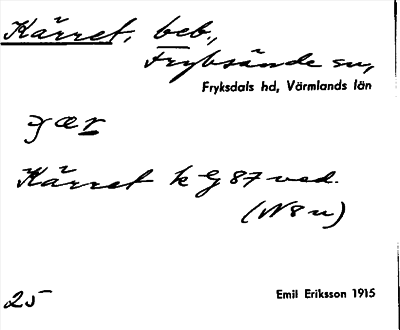 Kärret, beb.,
Fryksände sn,
Fryksdals hd, Värmlands län
Kärret k G 87 vad.
(N8u)
25
Emil Eriksson 1915